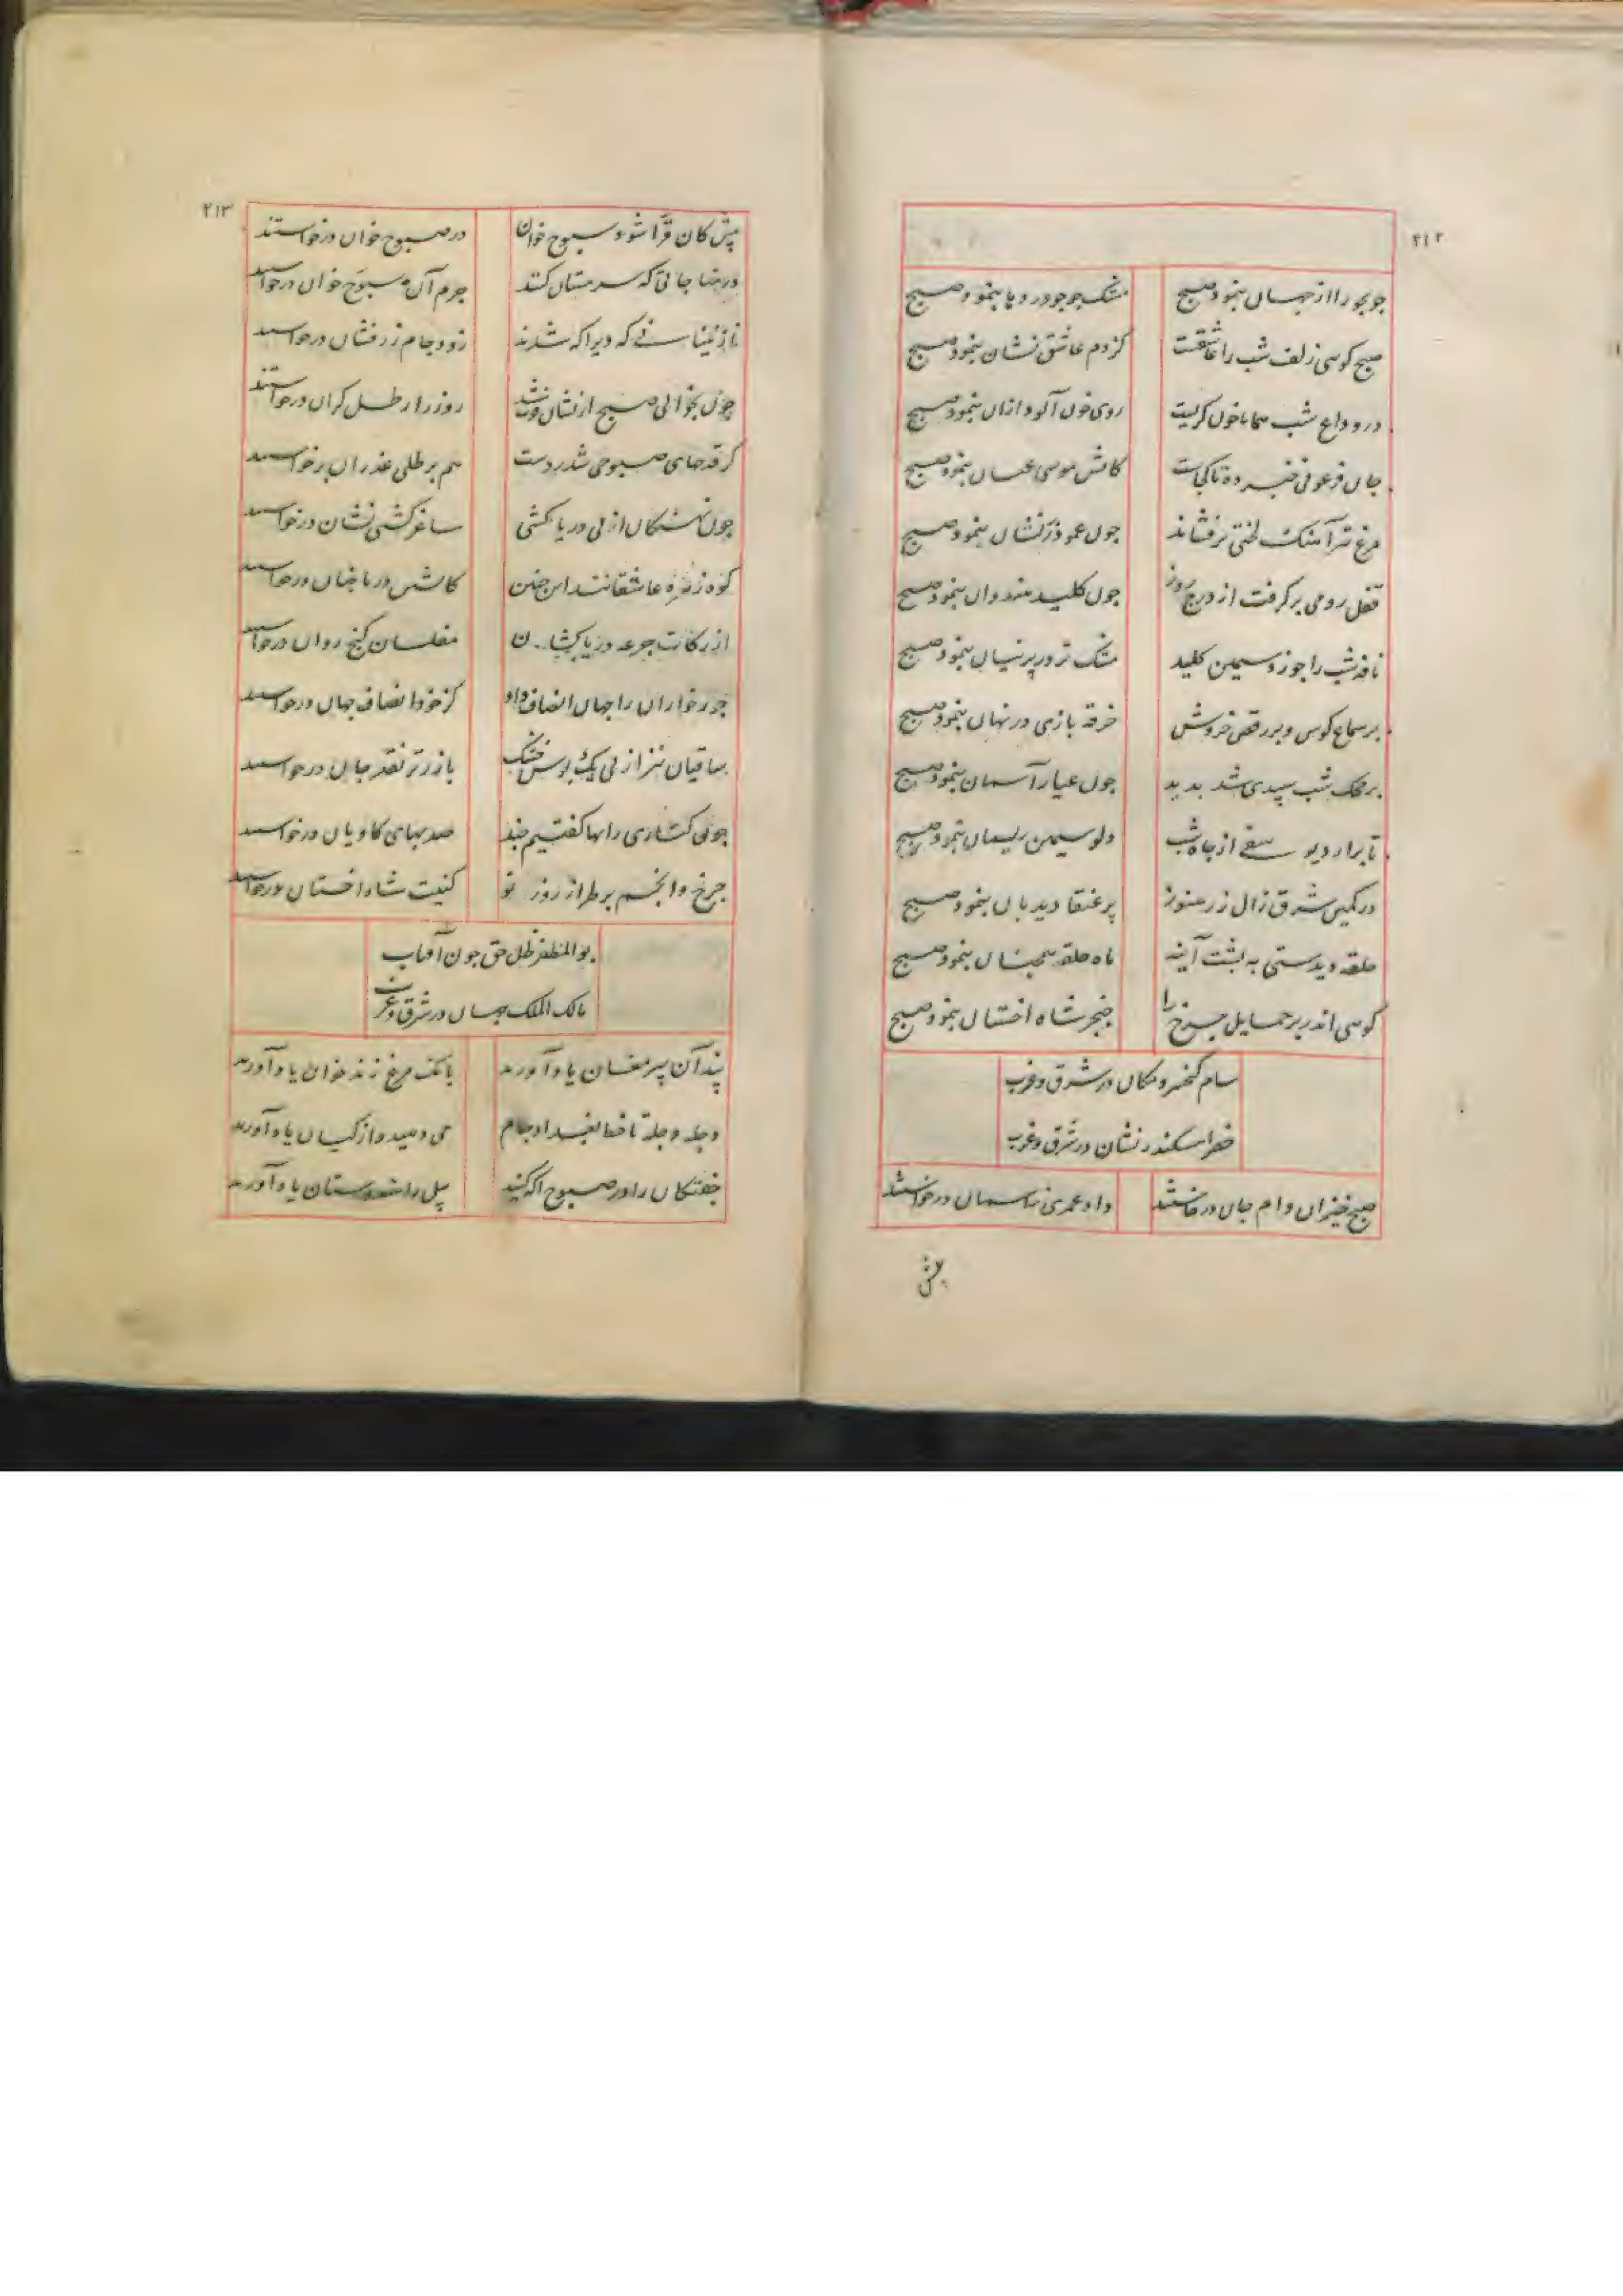 ۲۱۲
جو بجو راز جهان بنمود صبح مشک جو جو در دهان بنمود صبح
صبح کوسی زلف شب را عاشقست کزدم عاشق نشان بنمود صبح
در وداع شب همانا خون کریست روی خون آلود ازان بنمود صبح
جان فرعونی کاتش موسی عیان بنمود صبح
مرغ تیز آهنک لختی پر فشاند چون عمود زرفشان بنمود صبح
قفل رومی بر کرفت از درج روز چون کلید هندوان بنمود صبح
نافه شب را جو زد سیمین کلید مشک تر در پرنیان بنمود صبح
بر سماع کوس و بر رقص خروش خرقه بازی در نهان بنمود صبح
بر محک شب سپیدی شد بدید چون عیار آسمان بنمود صبح
تا برارد یوسفی از چاه شب دلو سیمین ریسمان بنمود صبح
در کمین شرق زال زر هنوز پر عنقا دیدبان بنمود صبح
حلقه دیدستی به پشت آینه ماه حلقه همچنان بنمود صبح
کوسی اندر بر حمایل چرخ را خنجر شاه اخستان بنمود صبح
سام کیخسرو مکان در شرق و غرب
خضر اسکندر نشان در شرق و غرب
صبح خیزان وام جان درخواستند داد عمری ز آسمان درخواستند
پیش
۲۱۳
پیش کان قرا شود سبوح خوان در صبوح خوان درخواستند
در مناجاتی که سر مستان کنند جرم آن سبوح خوان درخواستند
نازنینانی که دیر آکه شدند زود جام زرفشان درخواستند
چون بخوالی صبح ازنشان فوت شد روز را رطل کران درخواستند
کر قدحهای صبوحی شد ز دست هم بر طلی عذر ان برخواستند
چون نهنکان از پی دریا کشی ساغر کشتی نشان درخواستند
کوه زهره عاشقانند این چنین کاتش دریا فشان درخواستند
از زکات جرعه دریا کشان مفلسان کنج روان درخواستند
جور خواران را جهان انصاف داد کز خود انصاف جهان درخواستند
ساقیان نیز از پی یک بوس خشک باز زر تر نقد جان درخواستند
چون کتاری را بها کفتیم چند صد بهای کاویان درخواستند
چرخ و انجم بر طراز روز نو کنیت شاه اخستان درخواستند
بو المظفر ظل حق چون آفتاب
مالک الملک جهان در شرق و غرب
پند آن پیر مغان یاد آورید بانک مرغ زند خوان یاد آورید
دجله دجله تا خط بغداد جام می دهید و از کیان یاد آورید
خفتکان را در صبوح آکه کنید پیل را هندوستان یاد آورید